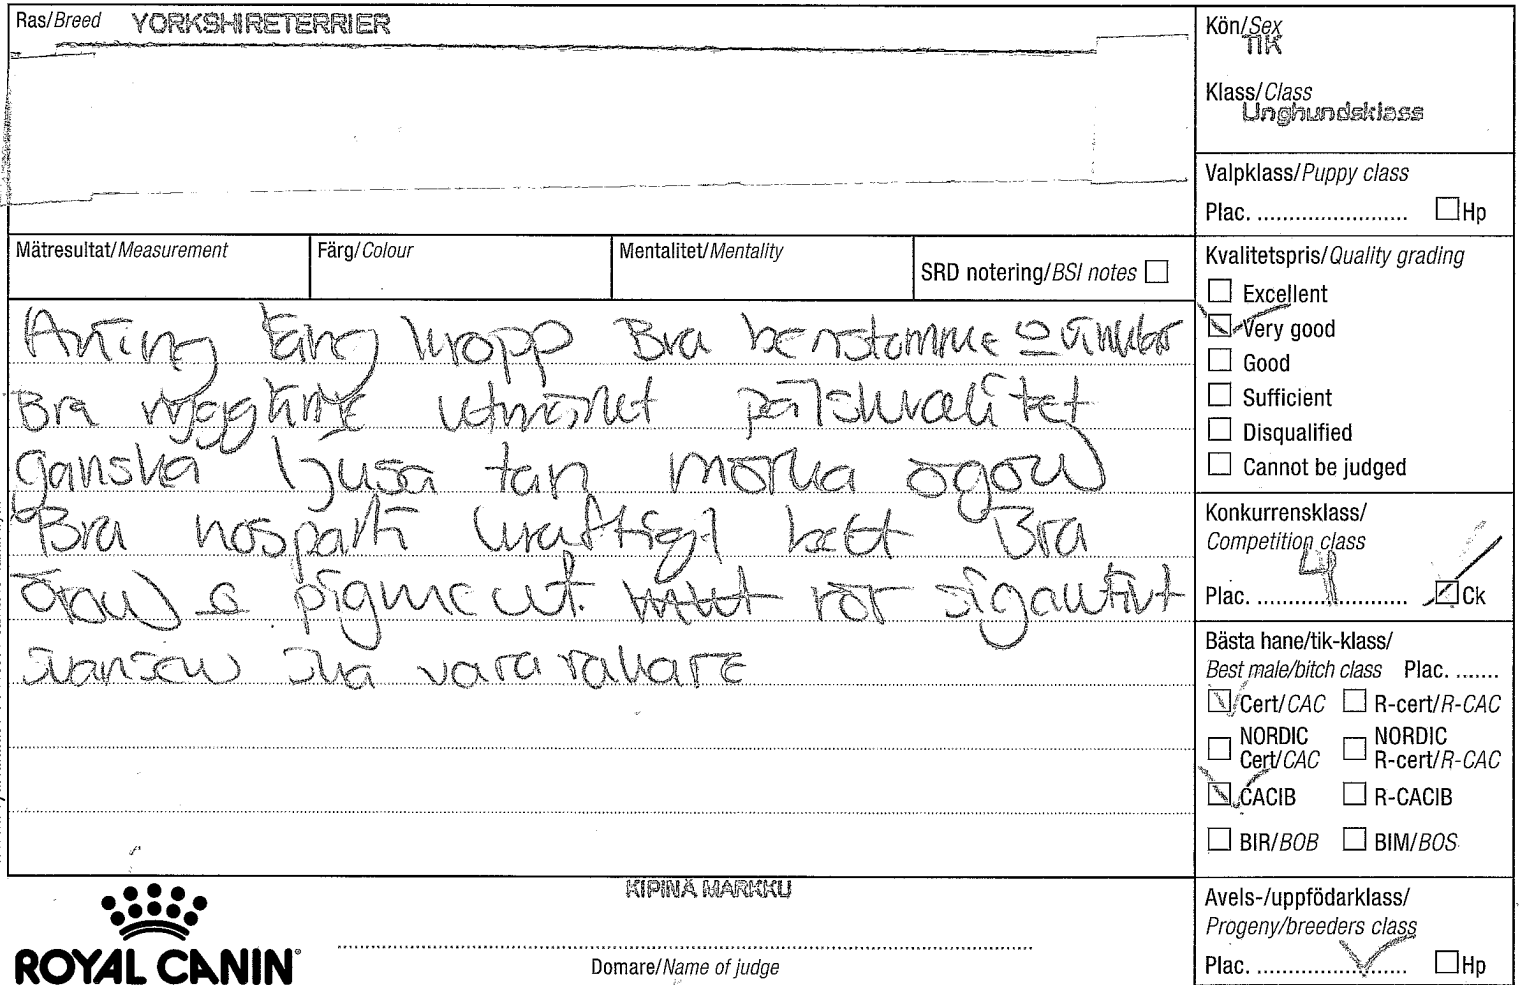 Ras/Breed YORKSHIRETERRIER
Kön/Sex
TIK
Klass/Class
Unghundsklass
Valpklass/Puppy class
Plac. ........................ Hp
Mätresultat/Measurement Färg/Colour Mentalitet/Mentality SRD notering/BSI notes
Kvalitetspris/Quality grading
Excellent
Very good
Good
Sufficient
Disqualified
Cannot be judged
Aning lång kropp Bra benstomme o vinklar
Bra rygglinje utmärket pälskvalitet
ganska ljusa tan mörka ögon
Bra nosparti kraftigt bett Bra
öron o pigment. rör sig aktivt
svansen ska vara rakare
Konkurrensklass/
Competition class
Plac. 4 Ck
Bästa hane/tik-klass/
Best male/bitch class Plac. .......
Cert/CAC R-cert/R-CAC
NORDIC Cert/CAC NORDIC R-cert/R-CAC
CACIB R-CACIB
BIR/BOB BIM/BOS
Avels-/uppfödarklass/
Progeny/breeders class
Plac. ........................ Hp
KIPINÄ MARKKU
Domare/Name of judge
ROYAL CANIN